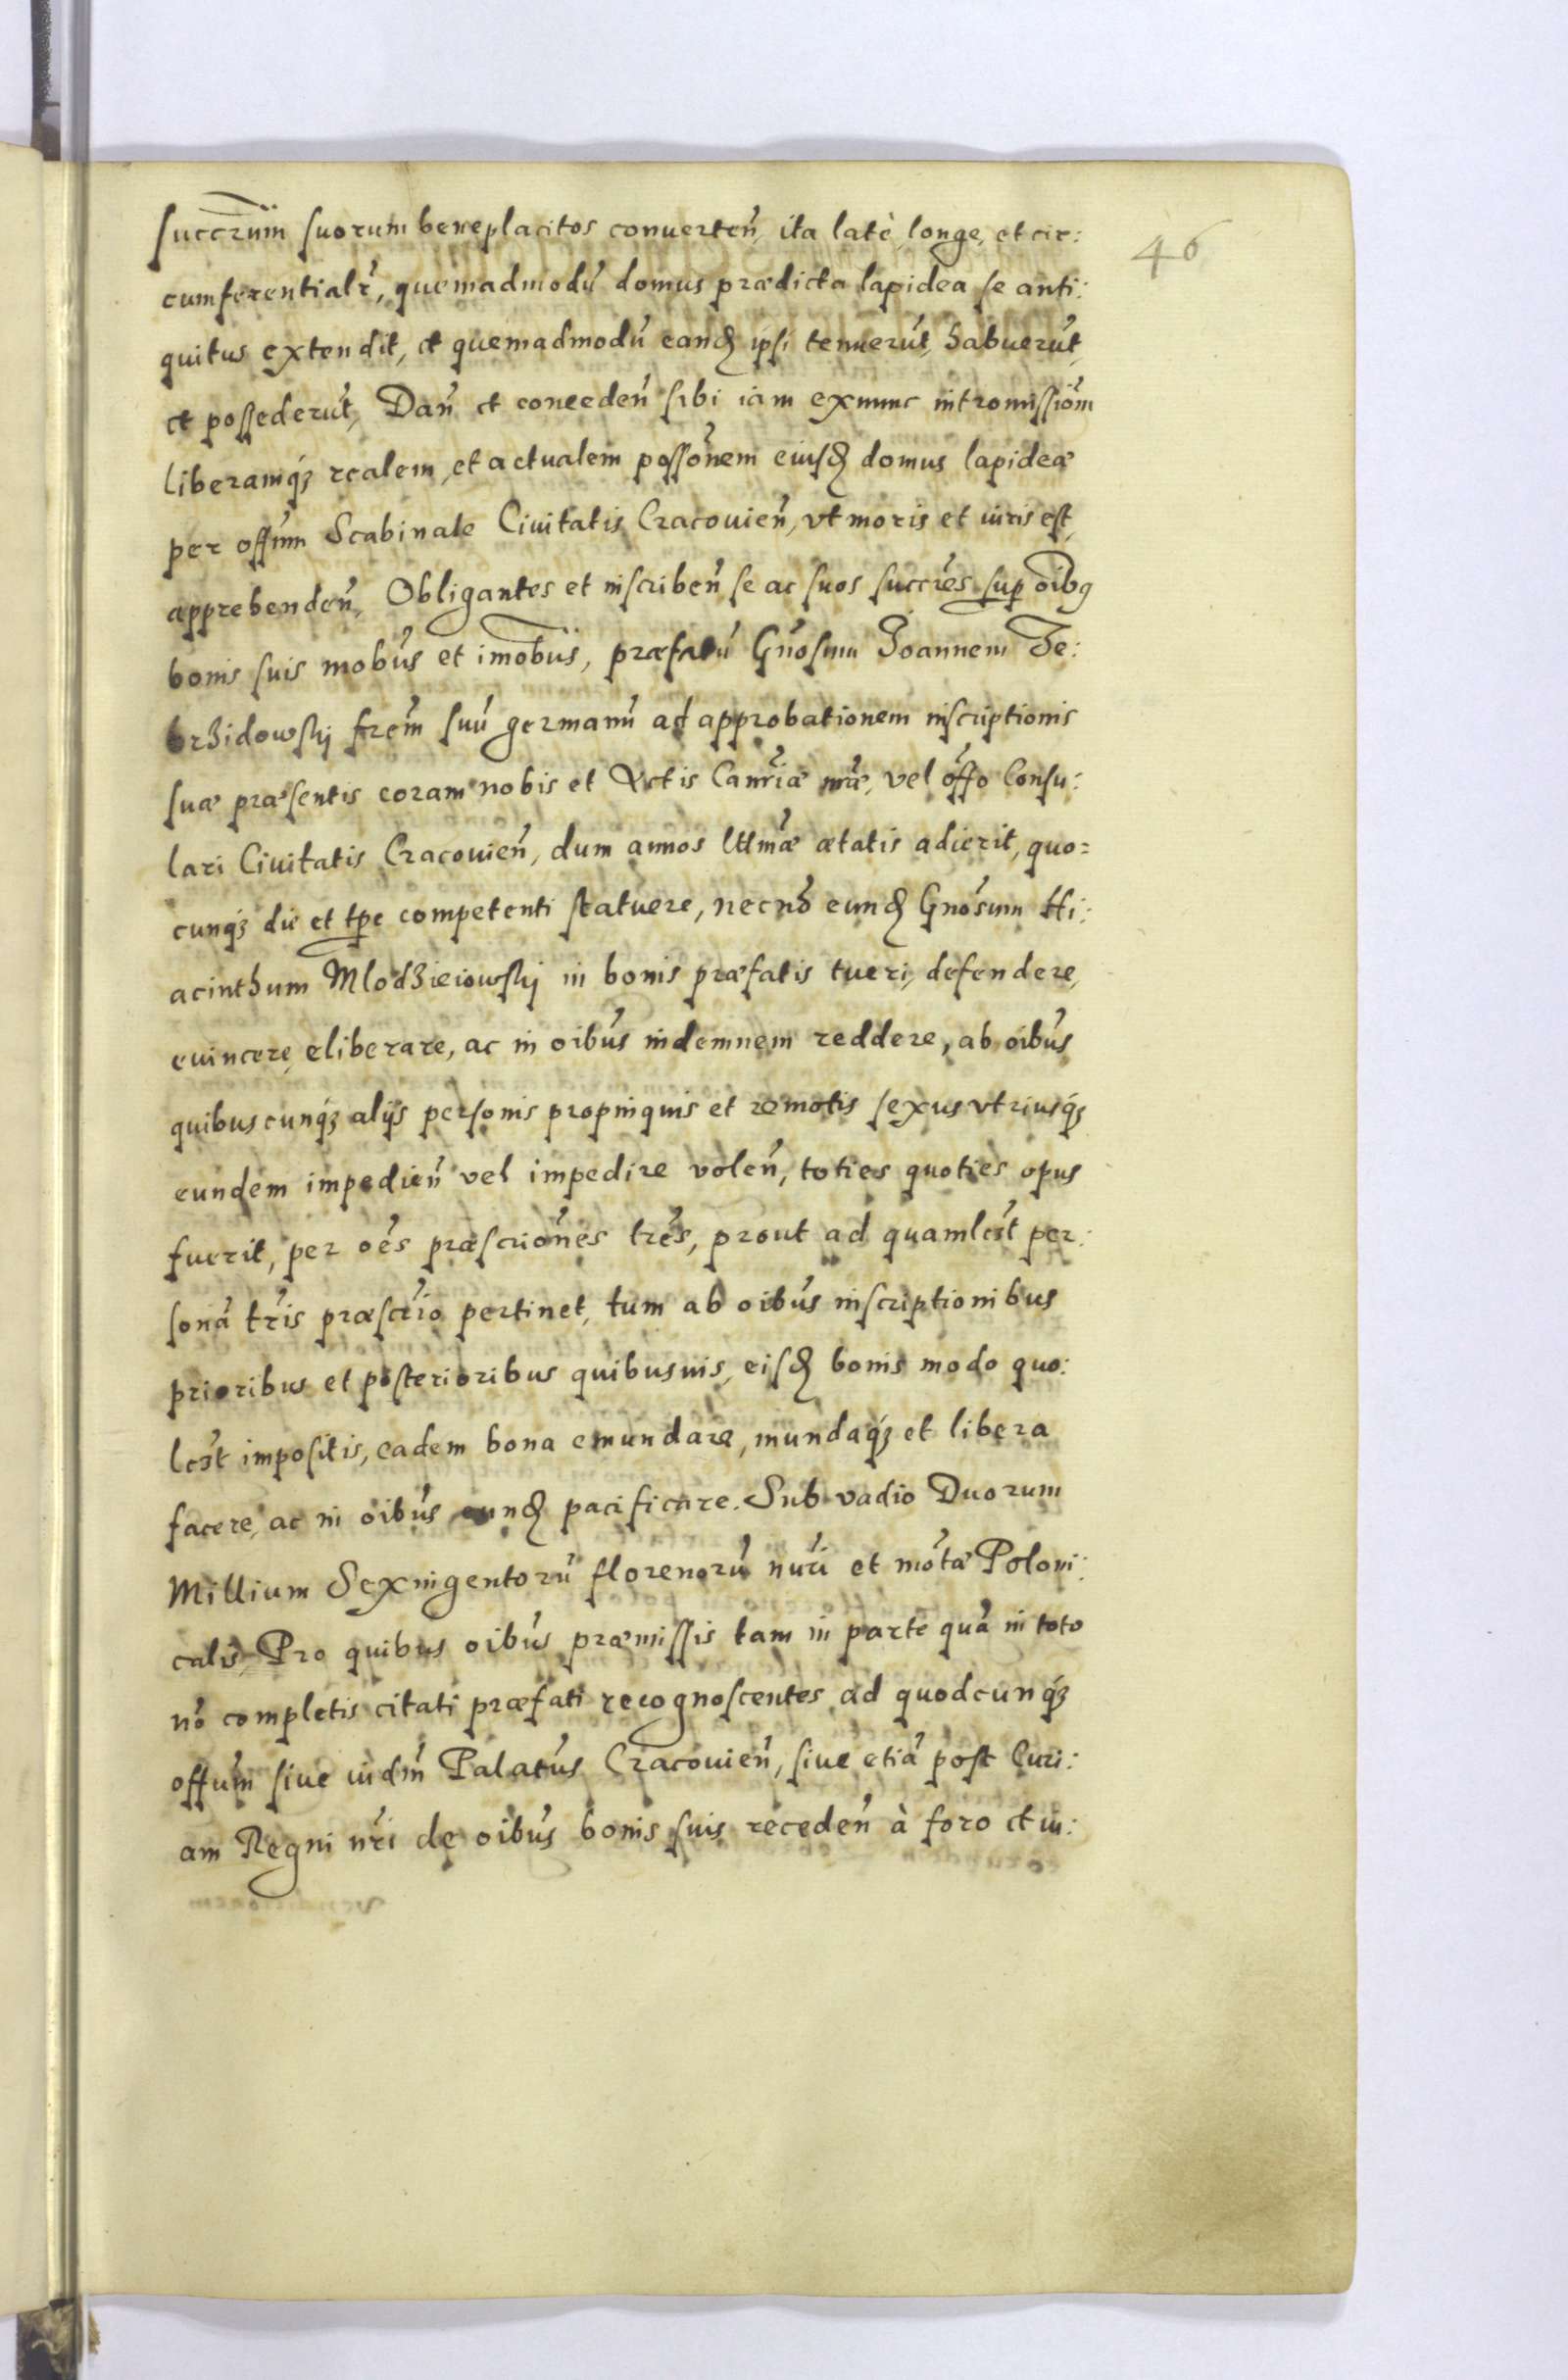 succrum̃ suorum beneplacitos conuerteñ, ita latè, longe, et cir:
46
cumferentialr̃, quemadmodũ domus prædicta lapidea se anti:
quitus extendit, et quemadmodũ eandẽ ipsi tenuerũt, habuerũt,
et possederũt, Dañ et concedeñ sibi iam exnunc intromissiõm
liberamq́ꝫ realem, et actualem possõnem eiusd̃ domus lapideæ
per offũm Scabinale Ciuitatis Cracouieñ, vt moris et iuris est,
apprehendeñ, Obligantes et inscribeñ se ac suos succr̃es sup̱ oĩbꝰ
bonis suis mobũs et imobũs, præfatũ Gño̅sum Joannem Ze:
brzidowsky fr̃em suũ germanũ ad approbationem inscriptionis
suæ præsentis coram nobis et Actis Canr̃iæ nr̃æ, vel offõ Consu:
lari Ciuitatis Cracouieñ, dum annos lttmæ̃ ætatis adierit, quo=
cunq́ꝫ die et tp̱e competenti statuere, necnõ eund̃ Gnõsum Hi:
acinthum Mlodzieiowsky in bonis præfatis tueri, defendere,
euincere, eliberare, ac in oĩbus indemnem reddere, ab oĩbus
quibuscunq́ꝫ alijs personis propinquis et remotis sexus vtriusq́ꝫ
eundem impedieñ vel impedire voleñ, toties quoties opus
fuerit, per oẽs præscriõnes tr̃es, prout ad quamlẽt per:
sonã tr̃is præscr̃io pertinet, tum ab oĩbus inscriptionibus
prioribus et posterioribus quibusuis, eisd̃ bonis modo quo:
lẽt impositis, eadem bona emundare, mundaq́ꝫ et libera
facere, ac in oĩbus eund̃ pacificare. Sub vadio Duorum
Millium Sexingentorũ florenorũ nũri et mõtæ Poloni:
calis, Pro quibus oĩbus præmissis tam in parte quã in toto
nõ completis citati præfati recognoscentes ad quodcunq́ꝫ
offũm siue iudm̃ Palatũs Cracouieñ, siue etiã post Curi:
am Regni nr̃i de oĩbus bonis suis recedeñ à foro et iu: